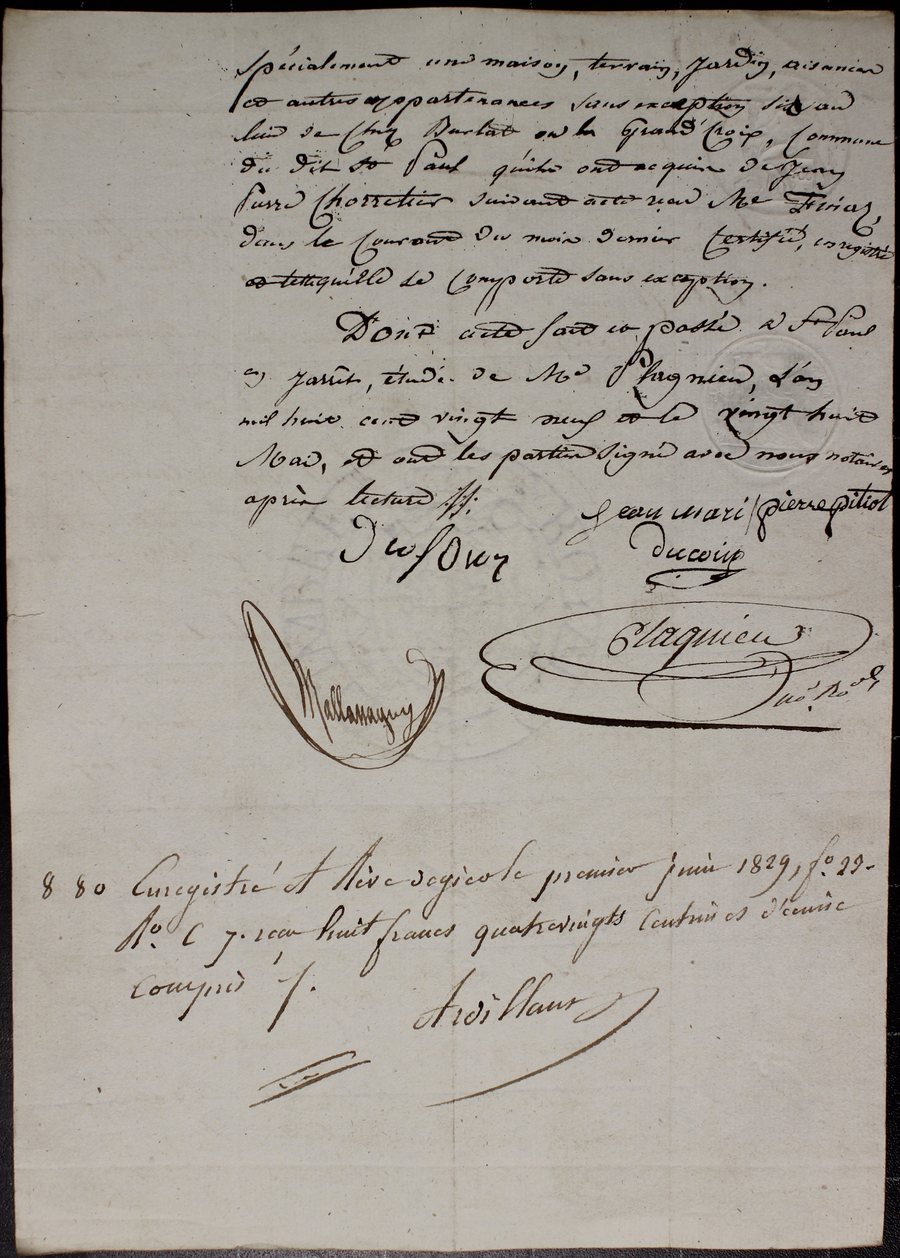 spécialement une maison, terrain, jardin, aisances
et autres appartenances sans exception sis au
lieu de chez Burlat ou la Grand Croix, Commune
du dit St Paul qu'ils ont acquis de Jean
Pierre Chorretier suivant acte reçu Me Finaz,
dans le courant du mois dernier Certifié, enregistré
et telle qu'elle se comporte sans exception.
Dont acte fait et passé à St Paul
en Jarrêt, étude de Me Plagnieu, L'an
mil huit cent vingt neuf et le vingt huit
Mai, et ont les parties Signé avec nous notaires
après lecture //.
Jean mari / pierre pitiot
ducoin
Plagnieu
Mallassagny
8 80 Enregistré à Rive de gier le premier juin 1829, fo. 29.
Ro. C 7. reçu huit francs quatrevingts centimes dixième
compris /.
Ardillaux